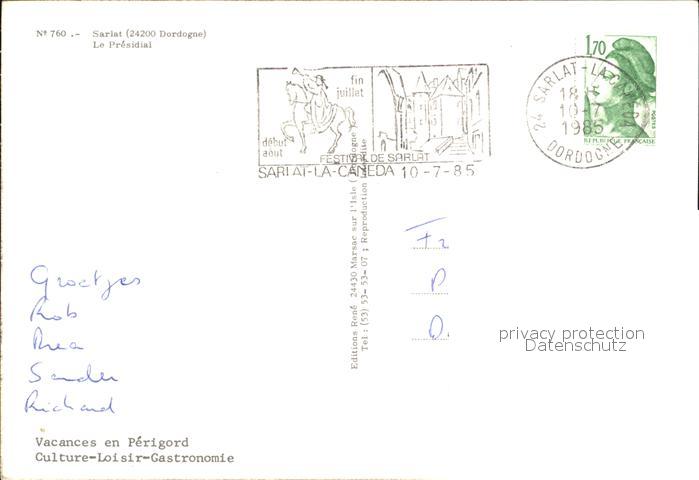 Nº 760 .- Sarlat (24200 Dordogne)
Le Présidial
fin
juillet
début
août
FESTIVAL DE SARLAT
SARLAT-LA-CANEDA 10-7-85
1,70
24 SARLAT-LA-CANEDA
18 H
10-7
1985
DORDOGNE
POSTES
REPUBLIQUE FRANÇAISE
Editions René 24430 Marsac sur l'Isle (Dordogne)
Tel : (53) 53-53-07 ; Reproduction interdite
Groetjes
Rob
Rea
Sander
Richard
Fr
P
D.
privacy protection
Datenschutz
Vacances en Périgord
Culture-Loisir-Gastronomie